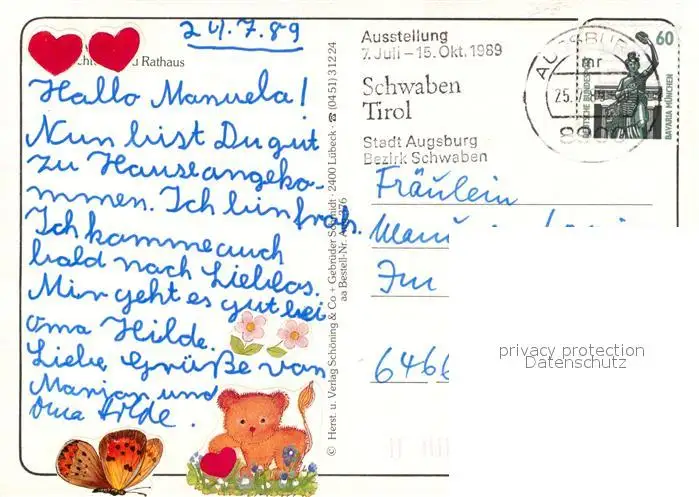 24.7.89
Rathaus
Hallo Manuela!
Nun bist Du gut
zu Hause angeko-
mmen. Ich bin froh.
Ich komme auch
bald nach Lieblos.
Mir geht es gut bei
Oma Hilde.
Liebe Grüße von
Marjan und
Oma Hilde.
© Herst. u. Verlag Schöning & Co + Gebrüder Schmidt · 2400 Lübeck · ☎ (0451) 31224
aa Bestell-Nr.
Ausstellung
7. Juli – 15. Okt. 1989
Schwaben
Tirol
Stadt Augsburg
Bezirk Schwaben
AUGSBURG
mr
25.7.89
60
DEUTSCHE BUNDESPOST
BAVARIA MÜNCHEN
Fräulein
Im
6466
privacy protection
Datenschutz